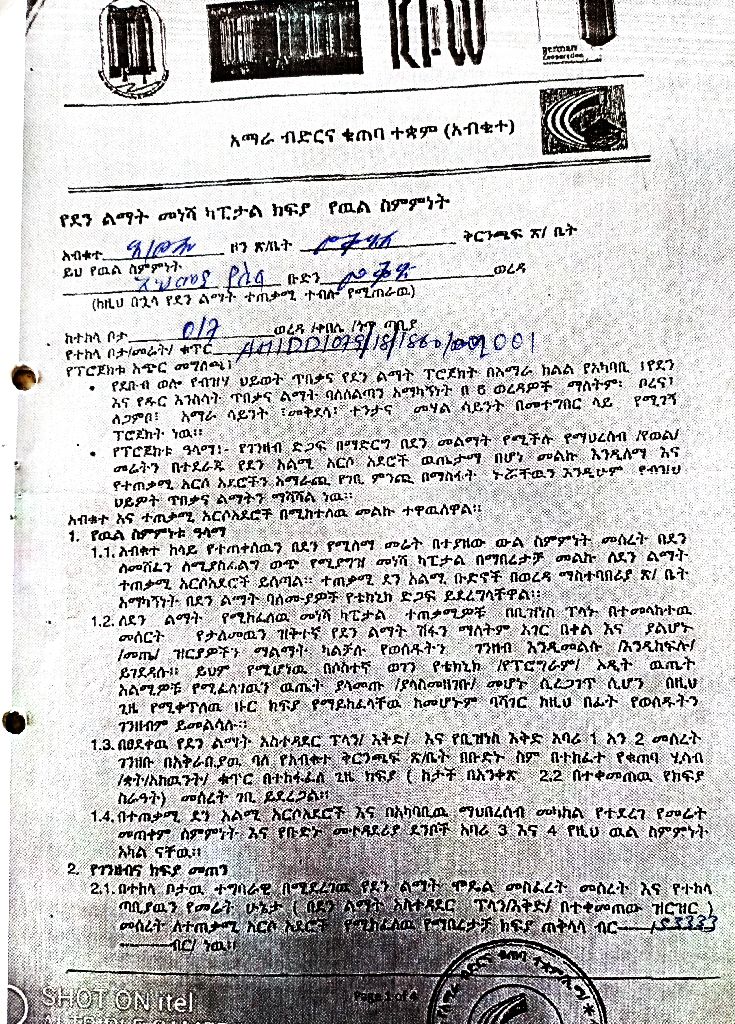 KFW
german
cooperation
አማራ ብድርና ቁጠባ ተቋም (አብቁተ)
የደን ልማት መነሻ ካፒታል ክፍያ የዉል ስምምነት
አብቁተ ዞን ጽ/ቤት ቅርንጫፍ ጽ/ ቤት
ይህ የዉል ስምምነት
ቡድን ወረዳ
(ከዚህ በኋላ የደን ልማት ተጠቃሚ ተብሎ የሚጠራዉ)
ከተከላ ቦታ 017 ወረዳ /ቀበሌ /ንዋ ጣቢያ
የተከላ ቦታ/መሬት/ ቁጥር
የፕሮጀክቱ አጭር መግለጫ፤
• የደቡብ ወሎ የብዝሃ ህይወት ጥበቃና የደን ልማት ፕሮጀክት በአማራ ክልል የአካባቢ ፤የደን
እና የዱር እንስሳት ጥበቃና ልማት ባለስልጣን አማካኝነት በ 5 ወረዳዎች ማለትም፡ ቦረና፤
ሌጋምቦ፤ አማራ ሳይንት ፤መቅደላ፤ ተንታና መሃል ሳይንት በመተግበር ላይ የሚገኝ
ፕሮጀክት ነዉ።
• የፕሮጀክቱ ዓላማ፤- የገንዘብ ድጋፍ በማድርግ በደን መልማት የሚችሉ የማህረሰብ /የወል/
መሬትን በተደራጁ የደን አልሚ አርሶ አደሮች ዉጤታማ በሆነ መልኩ እንዲለማ እና
የተጠቃሚ አርሶ አደሮችን አማራጪ የገቢ ምንጪ በማስፋት ኑሯቸዉን እንዲሁም የብዝህ
ህይዎት ጥበቃና ልማትን ማሻሻል ነዉ።
አብቁተ እና ተጠቃሚ አርሶአደሮች በሚከተለዉ መልኩ ተዋዉለዋል።
1. የዉል ስምምነቱ ዓላማ
1.1. አብቁተ ከላይ የተጠቀሰዉን በደን የሚለማ መሬት በተያዘው ውል ስምምነት መሰረት በደን
ለመሸፈን ለሚያስፈልግ ወጭ የሚያግዝ መነሻ ካፒታል በማበረታቻ መልኩ ለደን ልማት
ተጠቃሚ አርሶአደሮች ይሰጣል። ተጠቃሚ ደን አልሚ ቡድኖች በወረዳ ማስተባበሪያ ጽ/ ቤት
አማካኝነት በደን ልማት ባለሙያዎች የቴክኒክ ድጋፍ ይደረግላቸዋል።
1.2. ለደን ልማት የሚከፈለዉ መነሻ ካፒታል ተጠቃሚዎቹ በቢዝነስ ፕላኑ በተመላከተዉ
መሰርት የታለመዉን ዝቅተኛ የደን ልማት ሽፋን ማለትም አገር በቀል እና ያልሆኑ
/መጤ/ ዝርያዎችን ማልማት ካልቻሉ የወሰዱትን ገንዘብ እንዲመልሱ /እንዲከፍሉ/
ይገደዳሉ። ይህም የሚሆነዉ በሶስተኛ ወገን የቴክኒክ /የፕሮግራም/ ኦዲት ዉጤት
አልሚዎቹ የሚፈለገዉን ዉጤት ያላመጡ /ያላስመዘገቡ/ መሆኑ ሲረጋገጥ ሲሆን በዚህ
ጊዜ የሚቀጥለዉ ዙር ክፍያ የማይከፈላቸዉ ከመሆኑም ባሻገር ከዚህ በፊት የወሰዱትን
ገንዘብም ይመልሳሉ።
1.3. በፀደቀዉ የደን ልማት አስተዳደር ፕላን/ እቅድ/ እና የቢዝነስ እቅድ አባሪ 1 እን 2 መሰረት
ገንዘቡ በአቅራቢያዉ ባለ የአብቁተ ቅርንጫፍ ጽ/ቤት በቡድኑ ስም በተከፈተ የቁጠባ ሂሳብ
/ቋት/አካዉንት/ ቁጥር በተከፋፈለ ጊዜ ክፍያ ( ከታች በአንቀጽ 2.2 በተቀመጠዉ የክፍያ
ስራዓት) መሰረት ገቢ ይደረጋል።
1.4. በተጠቃሚ ደን አልሚ አርሶአደሮች እና በአካባቢዉ ማህበረሰብ መካከል የተደረገ የመሬት
መጠቀም ስምምነት እና የቡድኑ መተዳደሪያ ደንቦች አባሪ 3 እና 4 የዚህ ዉል ስምምነት
አካል ናቸዉ።
2. የገንዘብና ክፍያ መጠን
2.1. በተከላ ቦታዉ ተግባራዊ በሚደረገዉ የደን ልማት ሞዴል መስፈረት መሰረት እና የተከላ
ጣቢያዉን የመሬት ሁኔታ ( በደን ልማት አስተዳደር ፕላን/እቅድ/ በተቀመጠው ዝርዝር )
መሰረት ለተጠቃሚ አርሶ አደሮች የሚከፈለዉ የማበረታቻ ክፍያ ጠቅላላ ብር
ብር/ ነዉ።
Page 1 of 4
SHOT ON itel